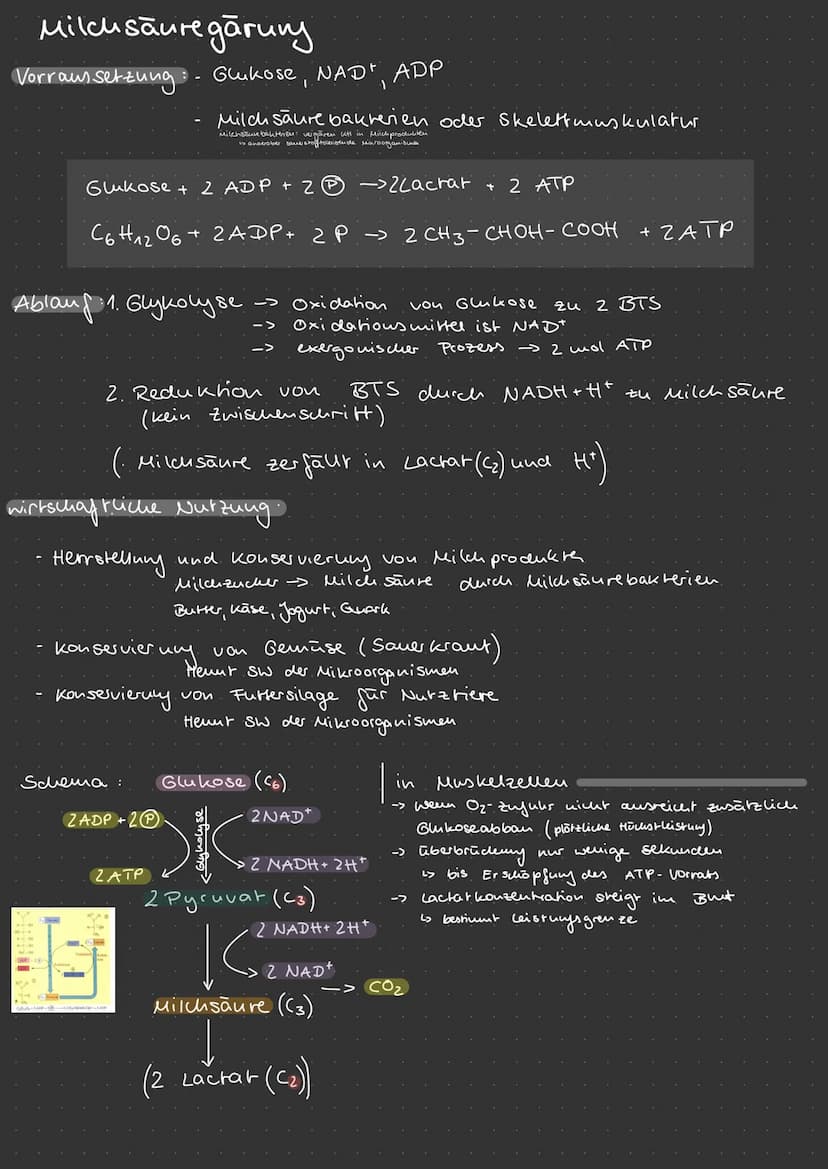 Milchsäuregärung
Vorraussetzung: - Glukose, NAD⁺, ADP
- Milchsäurebakterien oder Skelettmuskulatur
Milchsäurebakterien: vergären in Milchprodukten
Glukose + 2 ADP + 2 Ⓟ → 2 Lactat + 2 ATP
C₆H₁₂O₆ + 2 ADP + 2 P → 2 CH₃ - CHOH - COOH + 2 ATP
Ablauf: 1. Glykolyse → Oxidation von Glukose zu 2 BTS
→ Oxidationsmittel ist NAD⁺
→ exergonischer Prozess → 2 mol ATP
2. Reduktion von BTS durch NADH + H⁺ zu Milchsäure
(kein Zwischenschritt)
(. Milchsäure zerfällt in Lactat (C₂) und H⁺)
wirtschaftliche Nutzung
- Herrstellung und Konservierung von Milchprodukten
Milchzucker → Milchsäure durch Milchsäurebakterien
Butter, Käse, Jogurt, Quark
- Konservierung von Gemüse (Sauerkraut)
Hemmt SW der Mikroorganismen
- Konservierung von Futtersilage für Nutztiere
Hemmt SW der Mikroorganismen
Schema:
Glukose (C₆)
2 ADP + 2 Ⓟ
2 NAD⁺
Glykolyse
2 ATP
2 NADH + 2H⁺
2 Pyruvat (C₃)
2 NADH + 2H⁺
2 NAD⁺
→ CO₂
Milchsäure (C₃)
(2 Lactat (C₂))
in Muskelzellen
→ wenn O₂-zufuhr nicht ausreicht zusätzlich
Glukoseabbau (plötzliche Höchstleistung)
→ Überbrückung nur wenige Sekunden
↳ bis Erschöpfung des ATP-Vorrats
→ Lactatkonzentration steigt im Blut
↳ bestimmt Leistungsgrenze